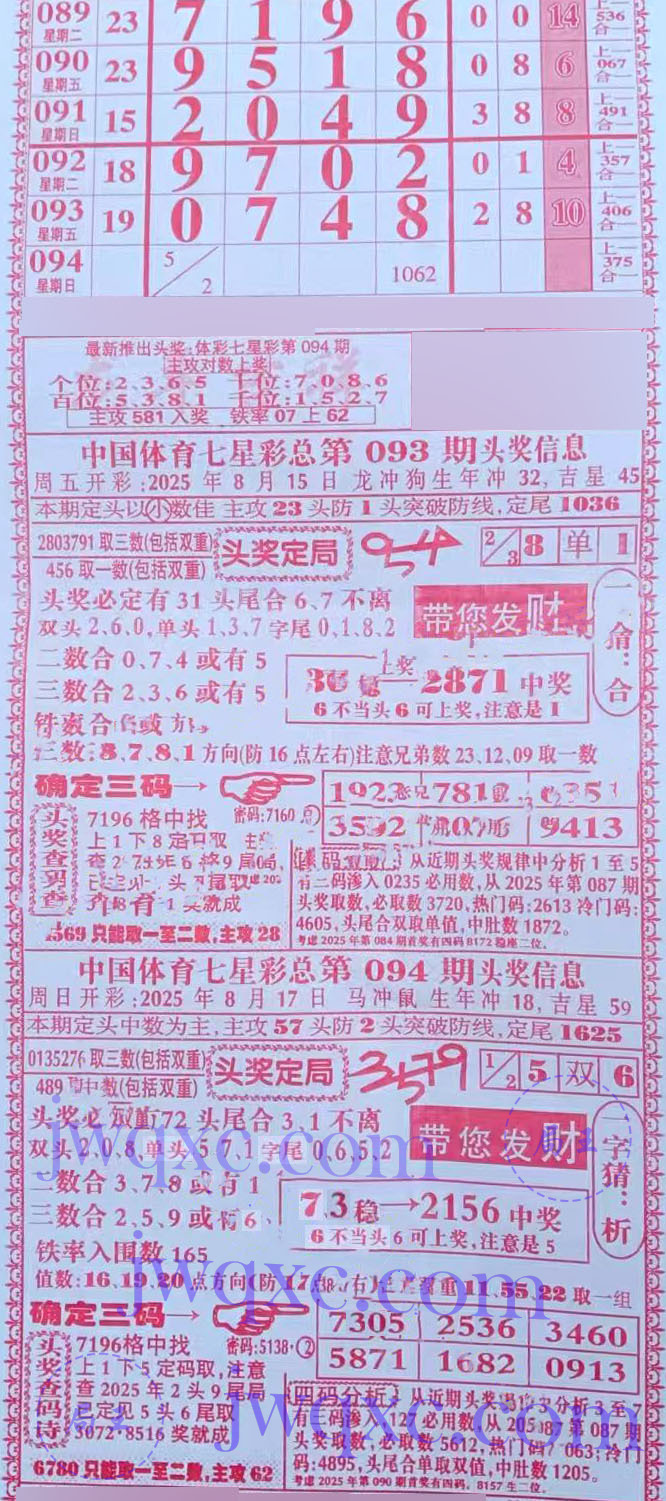 089 星期二 23 7 1 9 6 0 0 14 上一536合一
090 星期五 23 9 5 1 8 0 8 6 上一067合一
091 星期日 15 2 0 4 9 3 8 8 上一491合一
092 星期二 18 9 7 0 2 0 1 4 上一357合一
093 星期五 19 0 7 4 8 2 8 10 上一406合一
094 星期日 5/2 1062 上一375合一
最新推出头奖:体彩七星彩第 094 期
主攻对数上奖
个位:2、3、6、5 十位:7、0、8、6
百位:5、3、8、1 千位:1、5、2、7
主攻 581 入奖 铁率 07 上 62
中国体育七星彩总第 093 期头奖信息
周五开彩:2025 年 8 月 15 日 龙冲狗生年冲 32,吉星 45
本期定头以小数佳 主攻 23 头防 1 头突破防线,定尾 1036
2803791 取三数(包括双重)
456 取一数(包括双重)
头奖定局
954
2/3 8 单 1
头奖必定有 31 头尾合 6、7 不离
双头 2、6、0,单头 1、3、7 字尾 0、1、8、2
带您发财
二数合 0、7、4 或有 5
三数合 2、3、6 或有 5
上奖
2871 中奖
6 不当头 6 可上奖,注意是 1
一字猜:合
数:8、7、8、1 方向(防 16 点左右)注意兄弟数 23、12、09 取一数
确定三码→
1923 7812
3592 9413
头奖查
7196 格中找 密码:7160
上 1 下 8 定
奖就成
1569 只能取一至二数,主攻 28
从近期头奖规律中分析 1 至 5
有二码渗入 0235 必用数,从 2025 年第 087 期
头奖取数,必取数 3720,热门码:2613 冷门码:
4605,头尾合双取单值,中肚数 1872。
考虑 2025 年第 084 期首奖有四码 8172 稳座二位。
中国体育七星彩总第 094 期头奖信息
周日开彩:2025 年 8 月 17 日 马冲鼠 生年冲 18,吉星 59
本期定头中数为主,主攻 57 头防 2 头突破防线,定尾 1625
0135276 取三数(包括双重)
489 取中数(包括双重)
头奖定局
3579
1/2 5 双 6
头奖必 双重 72 头尾合 3、1 不离
双头 2、0、8,单头 5、7、1 字尾 0、6、5、2
带您发财
二数合 3、7、8 或有 1
三数合 2、5、9 或有 6
73 稳→2156 中奖
6 不当头 6 可上奖,注意是 5
字猜:析
铁率入围数 165
值数:16、19、20 点方向(防 17点 右) 双重 11、55、22 取一组
确定三码→
7305 2536 3460
5871 1682 0913
头奖查码诗
7196格中找 密码:5138·②
上 1 下 5 定码取,注意
查 2025 年 2 头 9 尾局
已定见 5 头 6 尾取
3072·8516 奖就成
6780 只能取一至二数,主攻 62
四码分析:从近期头奖 分析 3 至 7
有二码渗入 127 必用数,从 第 087 期
头奖取数,必取数 5612,热门码 063;冷门
码:4895,头尾合单取双值,中肚数 1205。
考虑 2025 年第 090 期首奖有四码,8157 生二位。
jwqxc.com
jwqxc.com
jwqxc.com